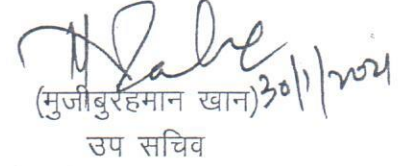 (मुजीबुरहमान खान) 30/1/2021
उप सचिव